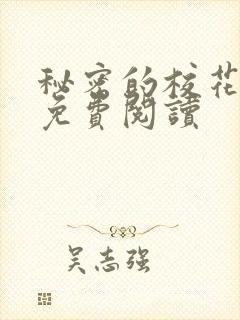 秘密的校花
免費閱讀
吴志强